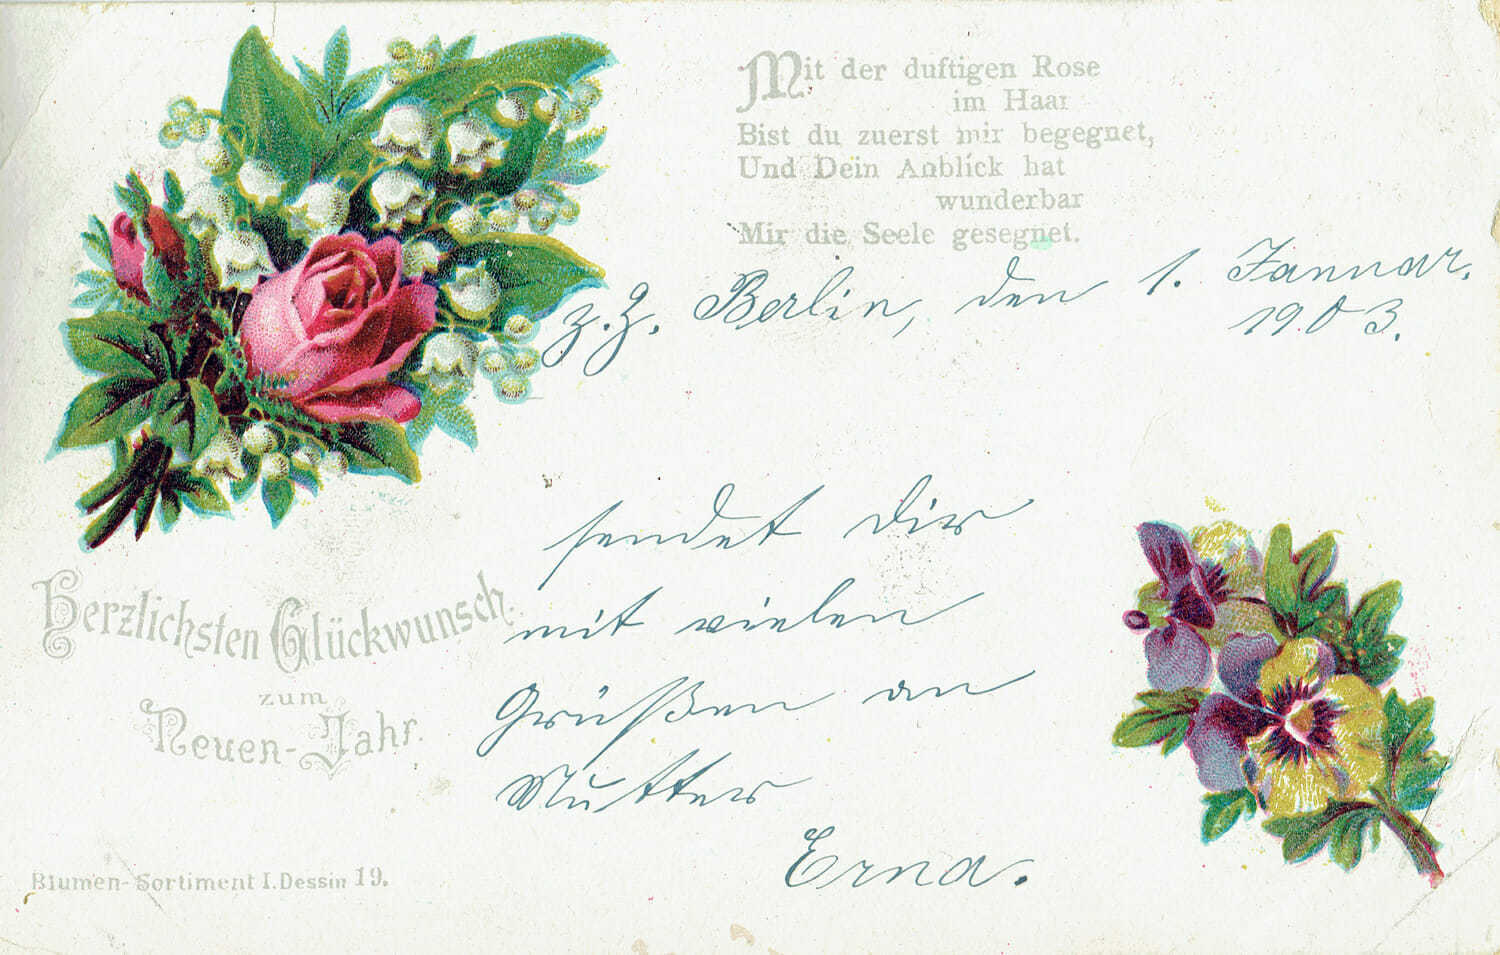 Mit der duftigen Rose
im Haar
Bist du zuerst mir begegnet,
Und Dein Anblick hat
wunderbar
Mir die Seele gesegnet.
z. Z. Berlin, den 1. Januar.
1903.
sendet dir
mit vielen
Grüßen an
Mutter
Erna.
Herzlichsten Glückwunsch
zum
Neuen-Jahr.
Blumen-Sortiment I. Dessin 19.